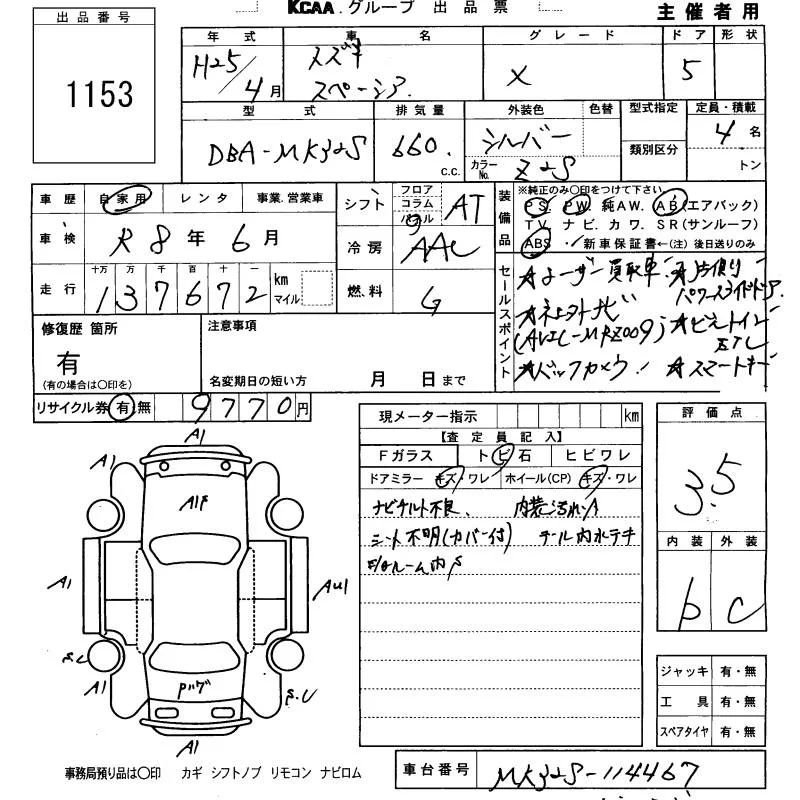 KCAA.グループ 出品票
主催者用
出品番号
1153
年式 車名 グレード ドア 形状
H25/4月 スズキ スペーシア X 5
型式 排気量 外装色 色替 型式指定 定員・積載
DBA-MK32S 660. c.c. シルバー 類別区分 4名
カラーNo. Z2S トン
車歴 自家用 レンタ 事業.営業車
シフト フロア コラム パネル AT
装備品 ※純正のみ〇印をつけて下さい
PS. PW. 純AW. AB(エアバック)
TV. ナビ. カワ. SR(サンルーフ)
ABS ・ 新車保証書←(注) 後日送りのみ
車検 R8年6月
冷房 AAC
走行 十万 万 千 百 十 一
137672 km マイル
燃料 G
セールスポイント
★ユーザー買取車 ★片側パワースライドドア
★社外ナビ (AVIC-MRZ009) ★ビルトインETC
★バックカメラ ★スマートキー
修復歴 箇所 注意事項
有
(有の場合は〇印を) 名変期日の短い方 月 日まで
リサイクル券 有・無 9770円
現メーター指示 km
評価点
【査定員記入】
Fガラス トビ石 ヒビワレ
ドアミラー キズ・ワレ ホイール(CP) キズ・ワレ
3.5
ナビチルト不良. 内装汚れ
シート不明(カバー付) テール内水テキ
ルーム内S
内装 外装
b C
A1
A1
A1F
A1
AU1
S.C
A1
S.C
Pハゲ
A1
ジャッキ 有・無
工具 有・無
スペアタイヤ 有・無
事務局預り品は〇印 カギ シフトノブ リモコン ナビロム
車台番号 MK32S-114467